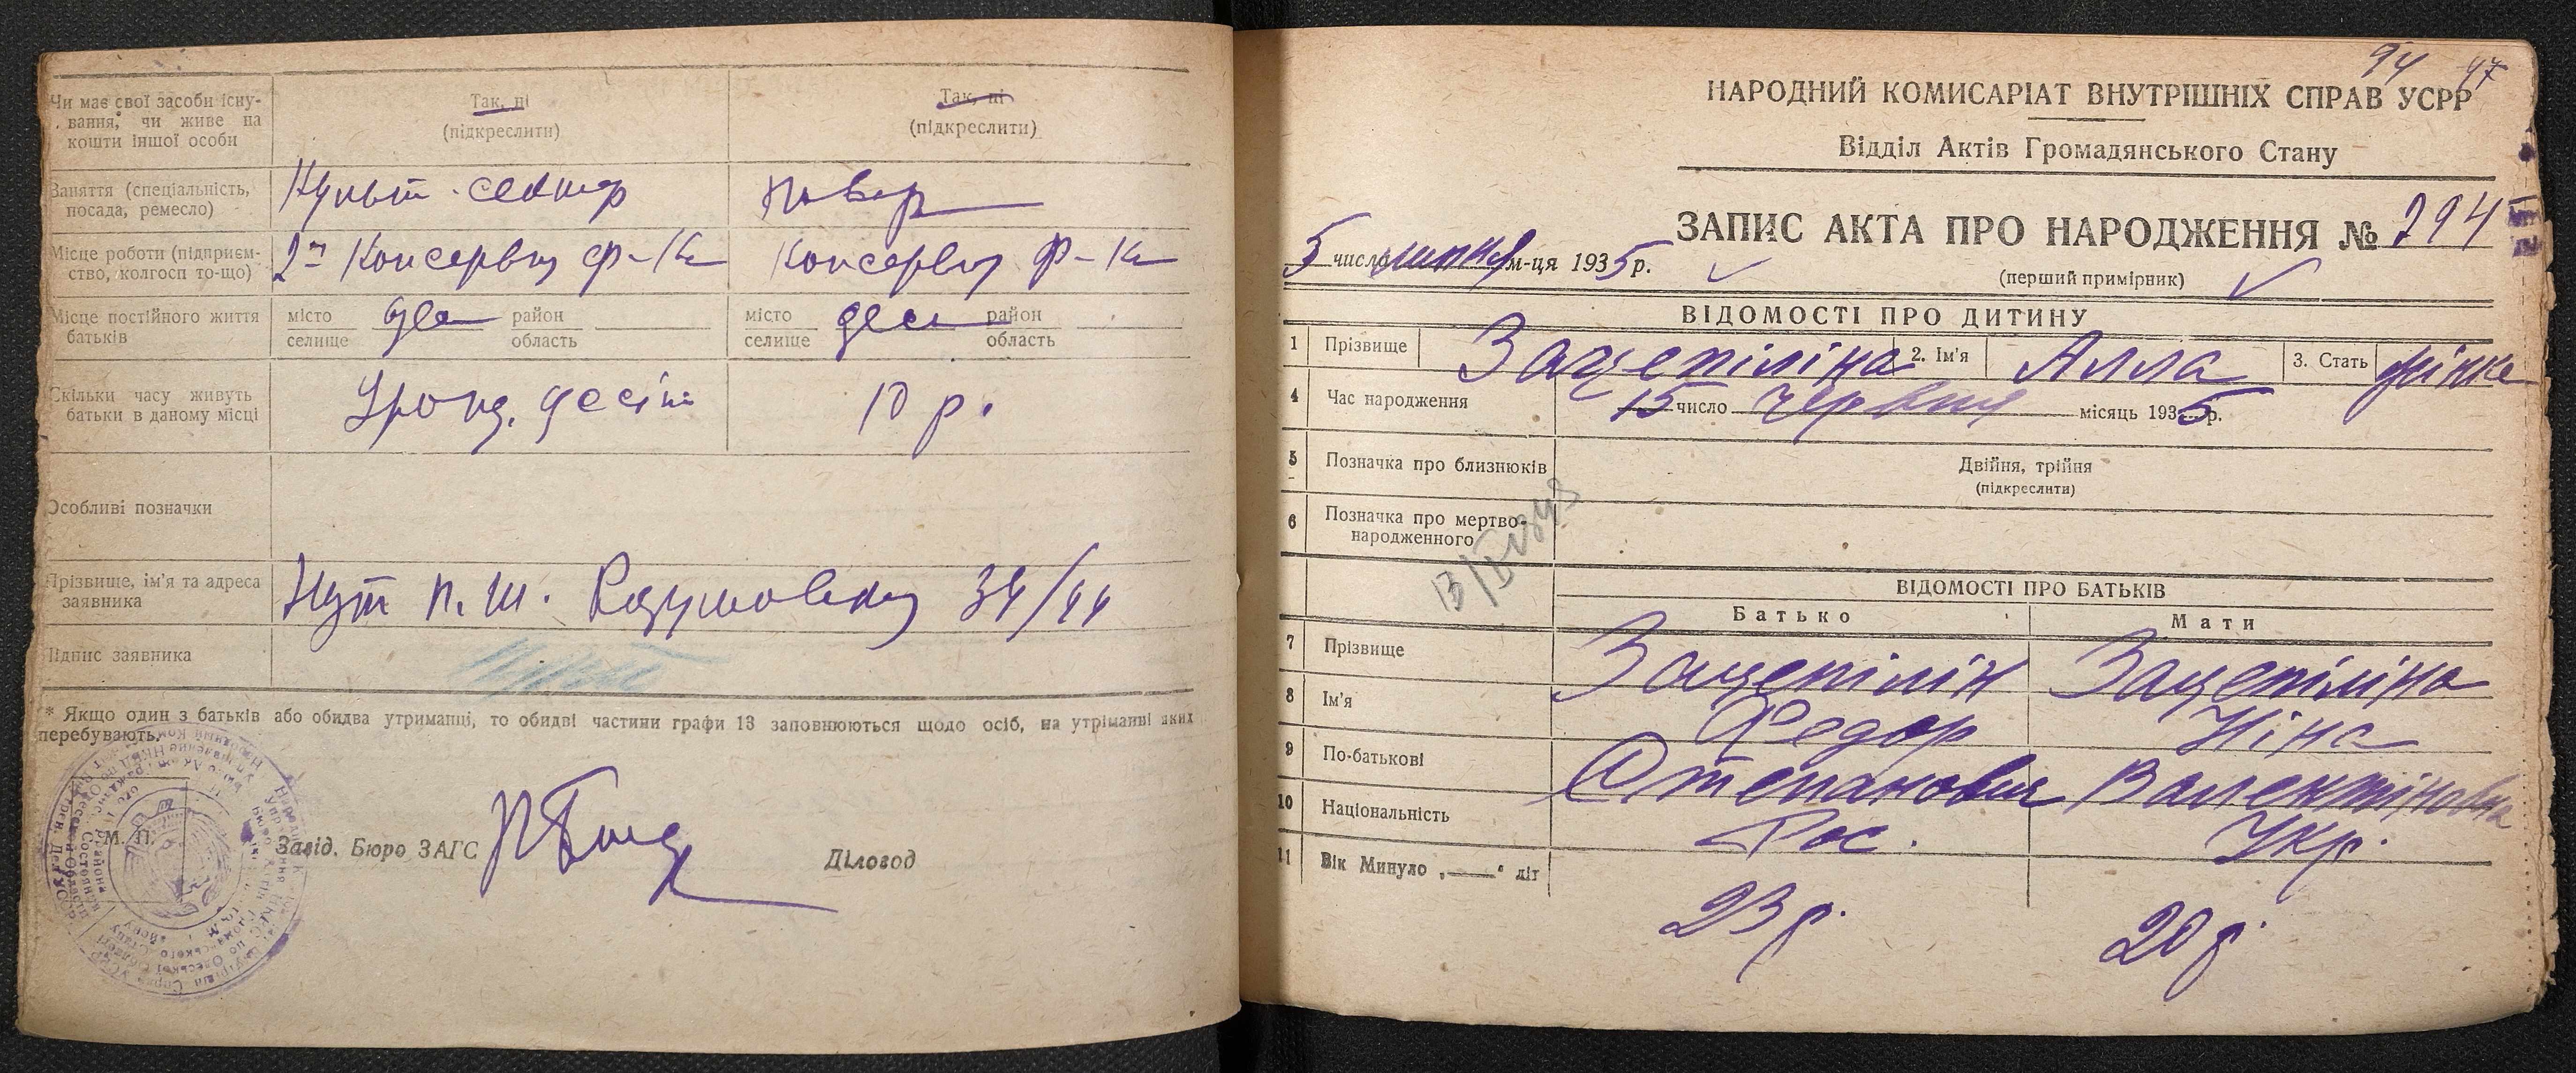 Чи має свої засоби існу-
вання, чи живе на
кошти іншої особи
Так, ні
(підкреслити)
Так, ні
(підкреслити)
Заняття (спеціальність,
посада, ремесло)
Культ. сектор
повар
Місце роботи (підприєм-
ство, колгосп то-що)
Консервн ф-ка
Консервн ф-ка
Місце постійного життя
батьків
місто
селище
район
область
місто
селище
район
область
Скільки часу живуть
батьки в даному місці
Урожд. Одесіи
10 р.
Особливі позначки
Прізвище, ім'я та адреса
заявника
Кут п. ш. 34/44
Підпис заявника
* Якщо один з батьків або обидва утриманці, то обидві частини графи 13 заповнюються щодо осіб, на утриманні яких
перебувають.
М. П.
Завід. Бюро ЗАГС
Діловод
94 47
НАРОДНИЙ КОМИСАРІАТ ВНУТРІШНІХ СПРАВ УСРР
Відділ Актів Громадянського Стану
ЗАПИС АКТА ПРО НАРОДЖЕННЯ № 794
5 число липня м-ця 1935 р.
(перший примірник)
ВІДОМОСТІ ПРО ДИТИНУ
1 Прізвище Зацепіліна 2. Ім'я Алла 3. Стать жіноче
4 Час народження 15 число червня місяць 1935 р.
5 Позначка про близнюків Двійня, трійня
(підкреслити)
6 Позначка про мертво-
народженного
ВІДОМОСТІ ПРО БАТЬКІВ
Батько Мати
7 Прізвище Зацепілін Зацепіліна
8 Ім'я Федор Ніна
9 По-батькові Степанович Валентіновна
10 Національність Рос. Укр.
11 Вік Минуло „——“ літ
23 р. 20 р.